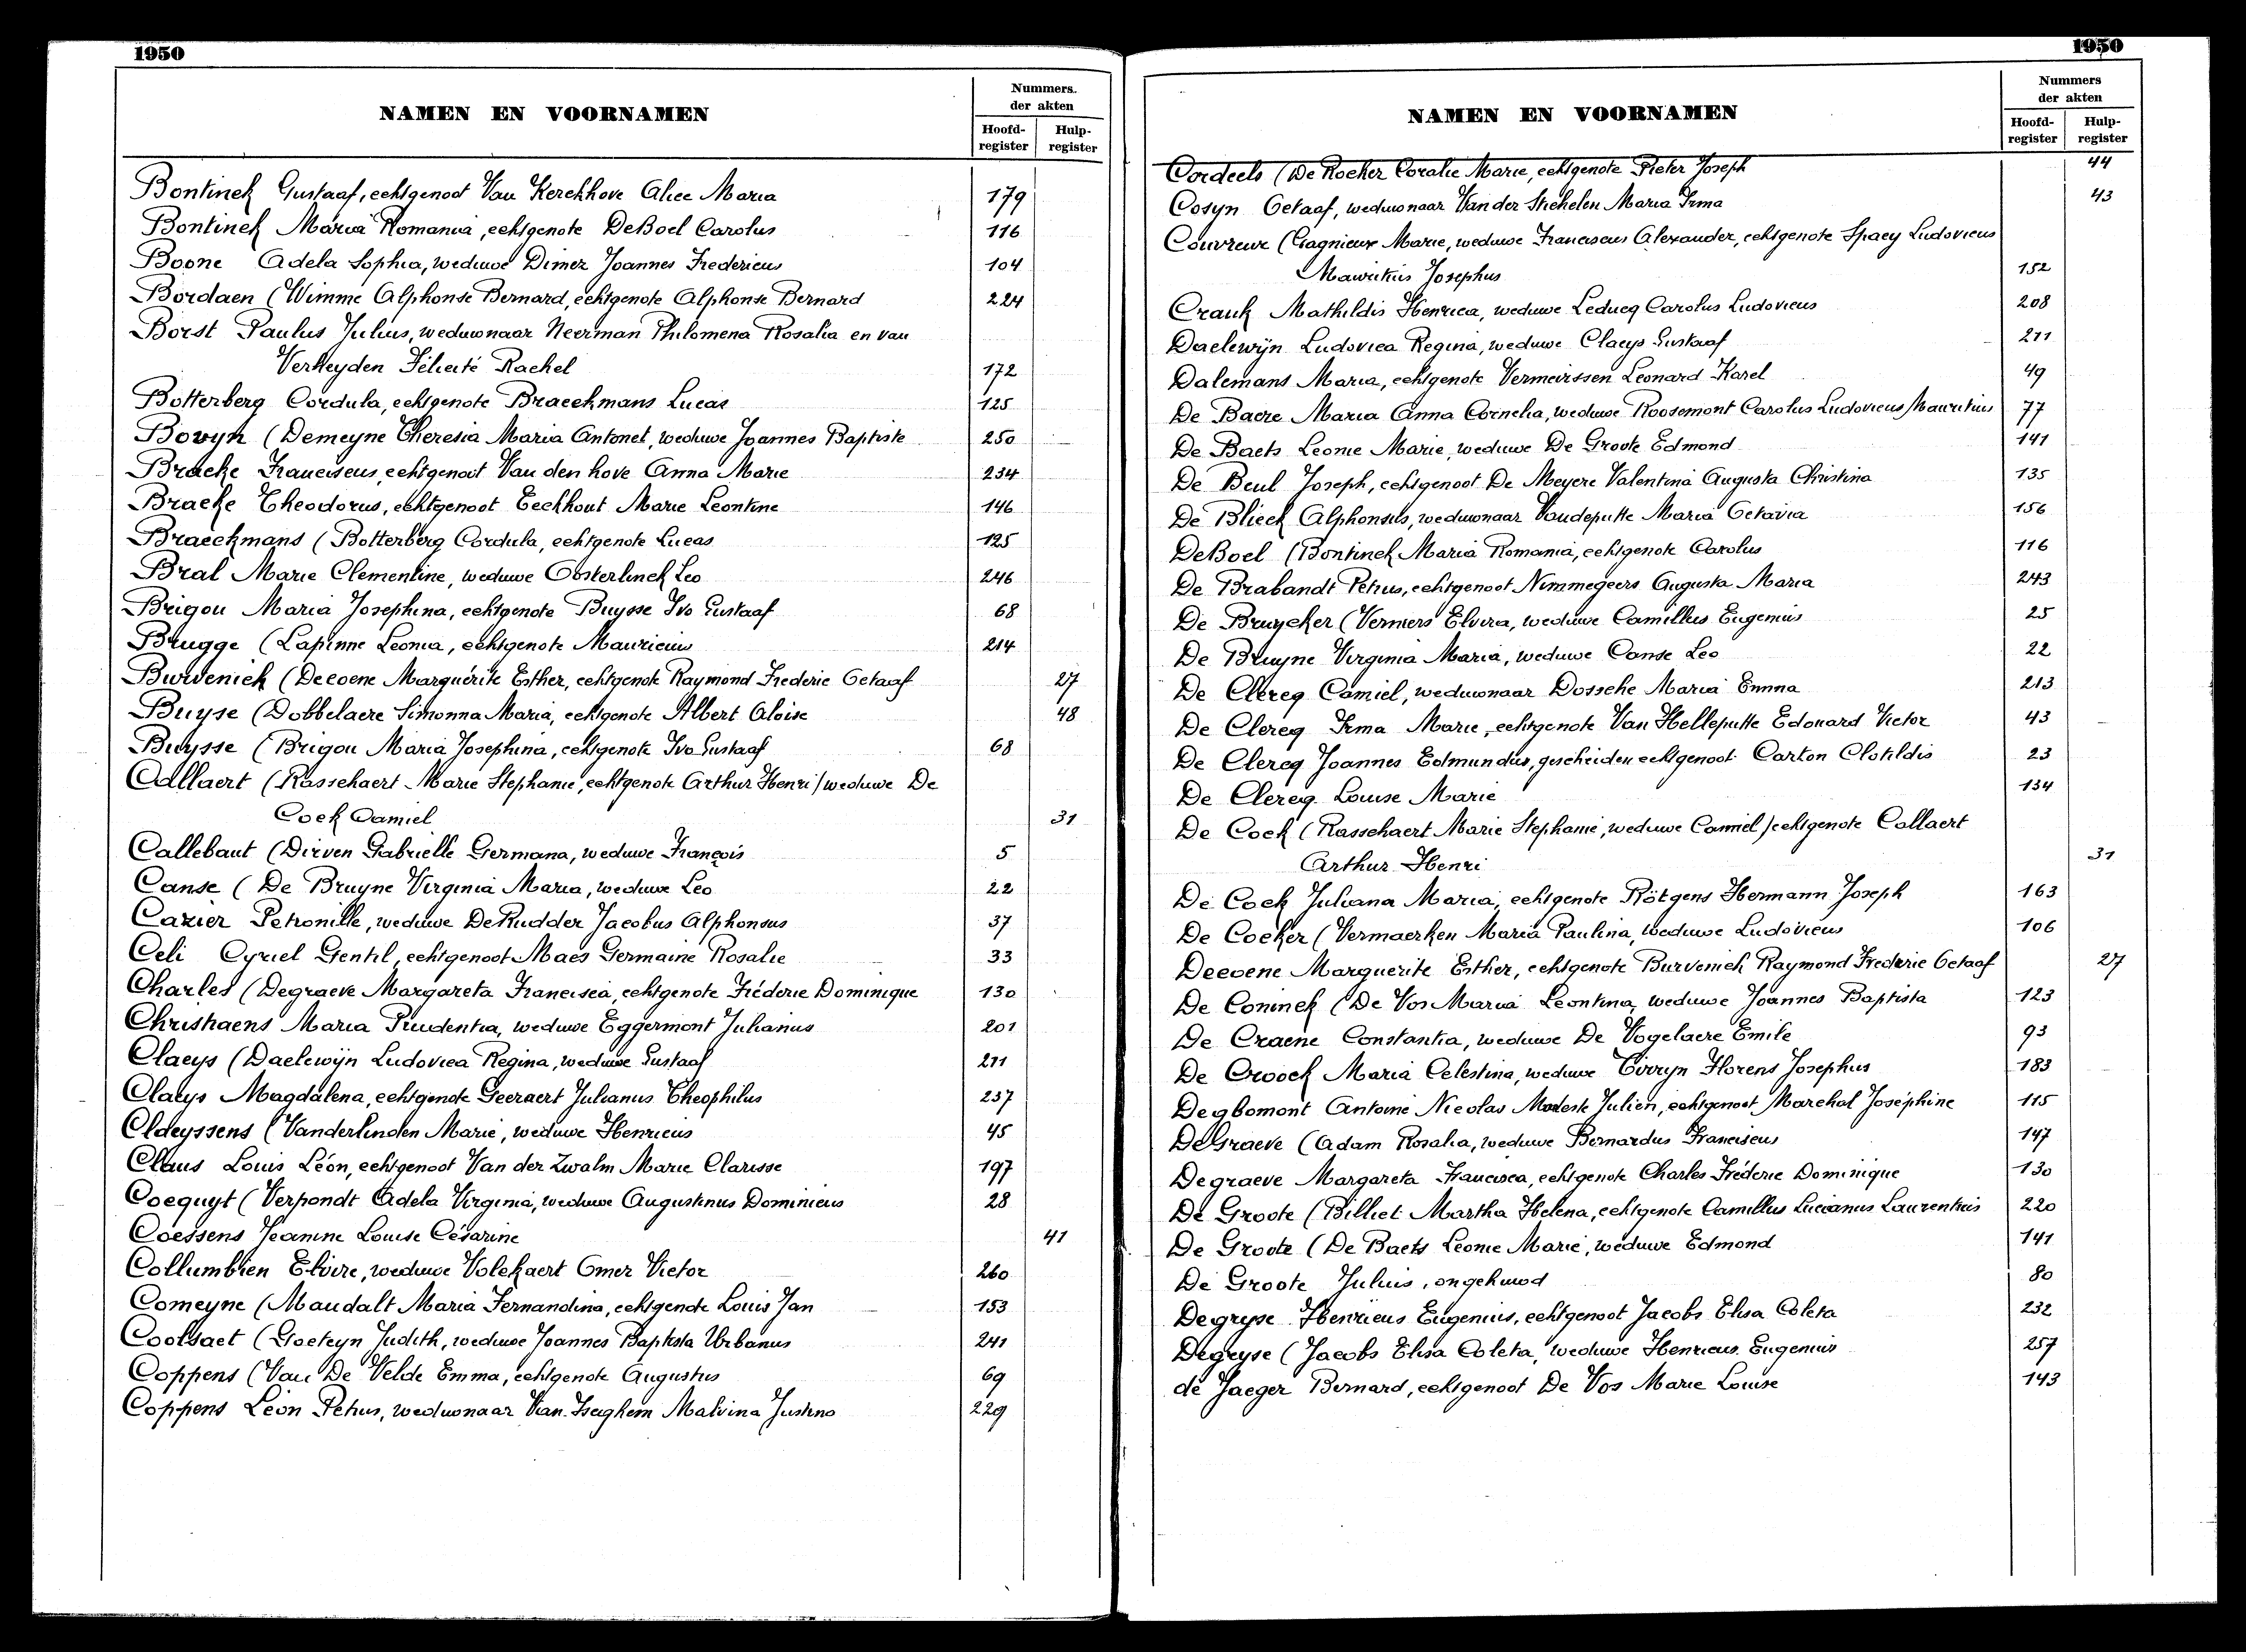 1950
NAMEN EN VOORNAMEN
Nummers.
der akten
Hoofd-
register
Hulp-
register
Bontinck Gustaaf, echtgenoot Van Kerckhove Alice Maria 179
Bontinck Maria Romania, echtgenote DeBoel Carolus 116
Boone Adela Sophia, weduwe Dimez Joannes Fredericus 104
Bordaen (Wimme Alphonse Bernard, echtgenote Alphonse Bernard 224
Borst Paulus Julius, weduwnaar Neerman Philomena Rosalia en van
Verheyden Félicité Rachel 172
Botterberg Cordula, echtgenote Braeckmans Lucas 125
Bovyn (Demeyne Theresia Maria Antonet, weduwe Joannes Baptiste 250
Bracke Franciscus, echtgenoot Van den hove Anna Marie 234
Bracke Theodorus, echtgenoot Eeckhout Marie Leontine 146
Braeckmans (Botterberg Cordula, echtgenote Lucas 125
Bral Marie Clementine, weduwe Oosterlinck Leo 246
Brigou Maria Josephina, echtgenote Buysse Ivo Gustaaf 68
Brugge (Lapinne Leonia, echtgenote Mauricius 214
Burvenich (Decoene Marguérite Esther, echtgenote Raymond Frederic Octaaf 27
Buyse (Dobbelaere Simonna Maria, echtgenote Albert Aloise 48
Buysse (Brigou Maria Josephina, echtgenote Ivo Gustaaf 68
Callaert (Rasschaert Marie Stephanie, echtgenote Arthur Henri/weduwe De
Cock Camiel 31
Callebaut (Dirven Gabrielle Germana, weduwe François 5
Canse (De Bruyne Virginia Maria, weduwe Leo 22
Cazier Petronille, weduwe DeRudder Jacobus Alphonsus 37
Celi Cyriel Gentil, echtgenoot Maes Germaine Rosalie 33
Charles (Degraeve Margareta Francisca, echtgenote Fréderic Dominique 130
Christiaens Maria Prudentia, weduwe Eggermont Julianus 201
Claeys (Daelewijn Ludovica Regina, weduwe Gustaaf 211
Claeys Magdalena, echtgenote Geeraert Julianus Theophilus 237
Claeyssens (Vanderlinden Marie, weduwe Henricus 45
Claus Louis Léon, echtgenoot Van der Zwalm Marie Clarisse 197
Coequyt (Verpondt Adela Virginia, weduwe Augustinus Dominicus 28
Coessens Jeanine Louise Césarine 41
Collumbien Elvire, weduwe Volckaert Omer Victor 260
Comeyne (Maudalt Maria Fernandina, echtgenote Louis Jan 153
Coolsaet (Goeteyn Judith, weduwe Joannes Baptista Urbanus 241
Coppens (Van De Velde Emma, echtgenote Augustus 69
Coppens Léon Petrus, weduwnaar Van Iseghem Malvina Justina 229
1950
NAMEN EN VOORNAMEN
Nummers
der akten
Hoofd-
register
Hulp-
register
Cordeels (De Rocker Coralie Marie, echtgenote Pieter Joseph 44
Cosyn Octaaf, weduwnaar Van der Stichelen Maria Irma 43
Couvreur (Gagnieux Marie, weduwe Franciscus Alexander, echtgenote Spaey Ludovicus
Mauritius Josephus 152
Crauk Mathildis Henrica, weduwe Leducq Carolus Ludovicus 208
Daelewijn Ludovica Regina, weduwe Claeys Gustaaf 211
Dalemans Maria, echtgenote Vermeirssen Leonard Karel 49
De Baere Maria Anna Cornelia, weduwe Roosemont Carolus Ludovicus Mauritius 77
De Baets Leonie Marie, weduwe De Groote Edmond 141
De Beul Joseph, echtgenoot De Meyere Valentina Augusta Christina 135
De Blieck Alphonsus, weduwnaar Vandeputte Maria Octavia 156
DeBoel (Bontinck Maria Romania, echtgenote Carolus 116
De Brabandt Petrus, echtgenoot Nimmegeers Augusta Maria 243
De Bruycker (Vermers Elvira, weduwe Camillus Eugenius 25
De Bruyne Virginia Maria, weduwe Canse Leo 22
De Clercq Camiel, weduwnaar Dossche Maria Emma 213
De Clercq Irma Marie, echtgenote Van Helleputte Edouard Victor 43
De Clercq Joannes Edmundus, gescheiden echtgenoot Carton Clotildis 23
De Clercq Louise Marie 134
De Cock (Rasschaert Marie Stephanie, weduwe Camiel/echtgenote Callaert
Arthur Henri 31
De Cock Juliana Maria, echtgenote Rötgens Hermann Joseph 163
De Cocker (Vermaerken Maria Paulina, weduwe Ludovicus 106
Decoene Marguerite Esther, echtgenote Burvenich Raymond Frederic Octaaf 27
De Coninck (De Vos Maria Leontina, weduwe Joannes Baptista 123
De Craene Constantia, weduwe De Vogelaere Emile 93
De Croock Maria Celestina, weduwe Civryn Florens Josephus 183
Degbomont Antoine Nicolas Modeste Julien, echtgenoot Marchal Joséphine 115
DeGraeve (Adam Rosalia, weduwe Bernardus Franciscus 147
Degraeve Margareta Francisca, echtgenote Charles Fréderic Dominique 130
De Groote (Billiet Martha Helena, echtgenote Camillus Lucianus Laurentius 220
De Groote (De Baets Leonie Marie, weduwe Edmond 141
De Groote Julius, ongehuwd 80
Degryse Henricus Eugenius, echtgenoot Jacobs Elisa Coleta 232
Degryse (Jacobs Elisa Coleta, weduwe Henricus Eugenius 257
de Jaeger Bernard, echtgenoot De Vos Marie Louise 143